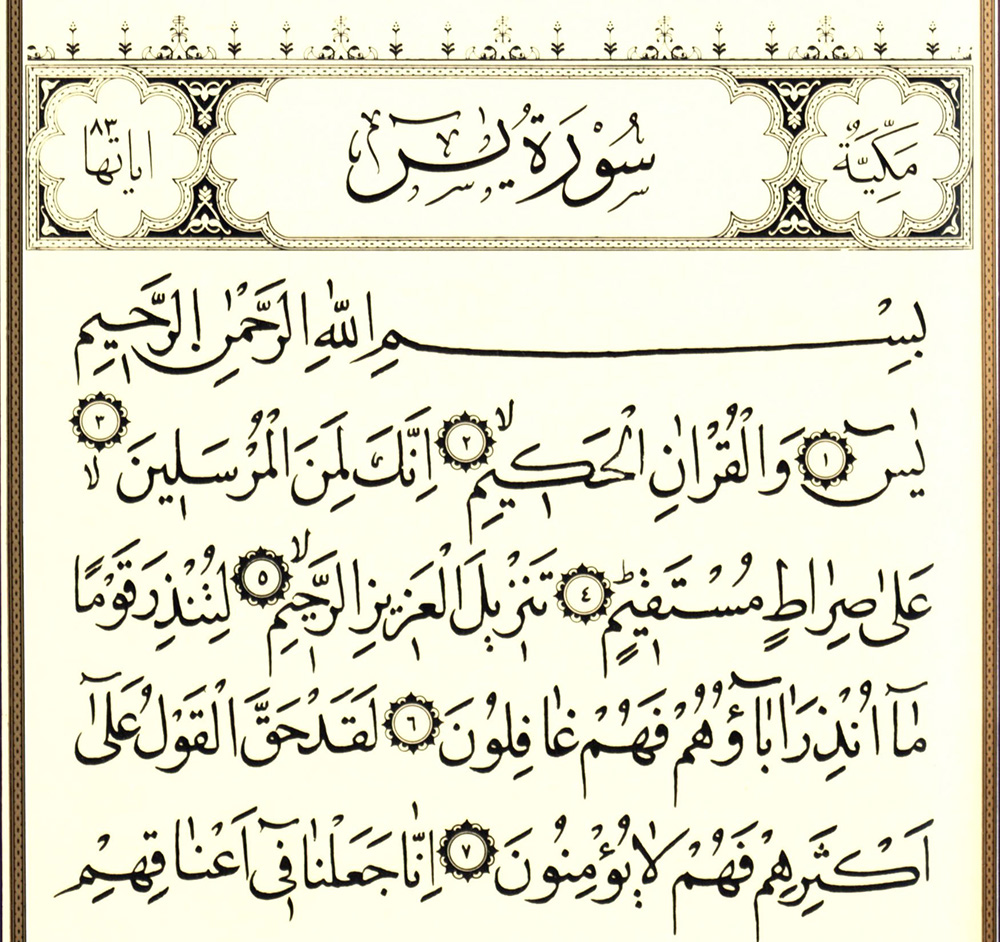 مَكِّيَّةٌ
سُوْرَةُ يٰسٓ
اياتها ٨٣
بِسْمِ اللّٰهِ الرَّحْمٰنِ الرَّحٖيمِ
يٰسٓ ١ وَالْقُرْاٰنِ الْحَكٖيمِ ۙ ٢ اِنَّكَ لَمِنَ الْمُرْسَلٖينَ ۙ ٣
عَلٰى صِرَاطٍ مُسْتَقٖيمٍ ؕ ٤ تَنْزٖيلَ الْعَزٖيزِ الرَّحٖيمِ ۙ ٥ لِتُنْذِرَ قَوْمًا
مَٓا اُنْذِرَ اٰبَٓاؤُهُمْ فَهُمْ غَافِلُونَ ٦ لَقَدْ حَقَّ الْقَوْلُ عَلٰٓى
اَكْثَرِهِمْ فَهُمْ لَا يُؤْمِنُونَ ٧ اِنَّا جَعَلْنَا فٖٓى اَعْنَاقِهِمْ